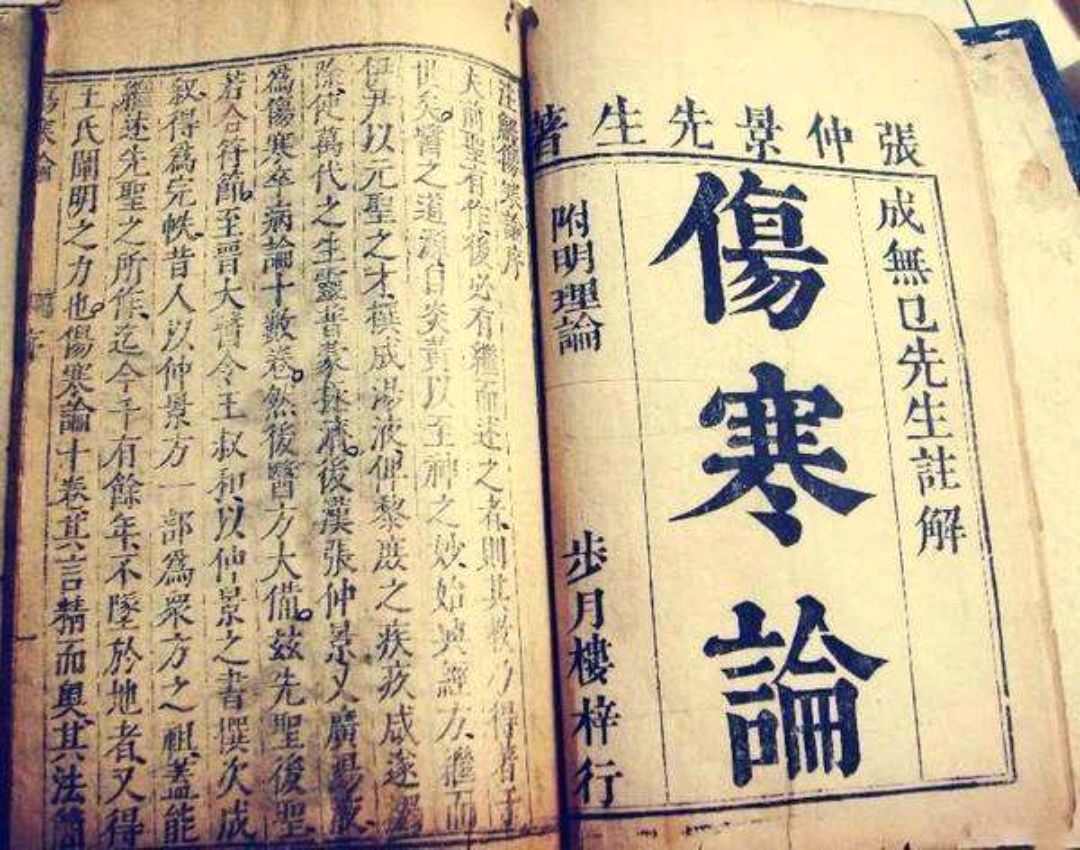 張仲景先生著
成無已先生註解
傷寒論
附明理論
步月樓梓行
註解傷寒論序
夫前聖有作後必有繼而述之者、則其教乃得著于
世矣。醫之道源自炎黃以至神之妙始興經方、繼而
伊尹以元聖之才、撰成湯液、俾黎庶之疾疢咸遂蠲
除、使萬代之生靈普蒙拯濟。後漢張仲景又廣湯液
爲傷寒卒病論十數卷。然後醫方大備。茲先聖後聖
若合符節。至晉大醫令王叔和以仲景之書撰次成
叙、得爲完帙、昔人以仲景方一部爲眾方之祖、蓋能
繼述先聖之所作、迄今千有餘年、不墜於地者、又得
王氏闡明之力也。傷寒論十卷、其言精而奧、其法簡
傷寒論 序 一